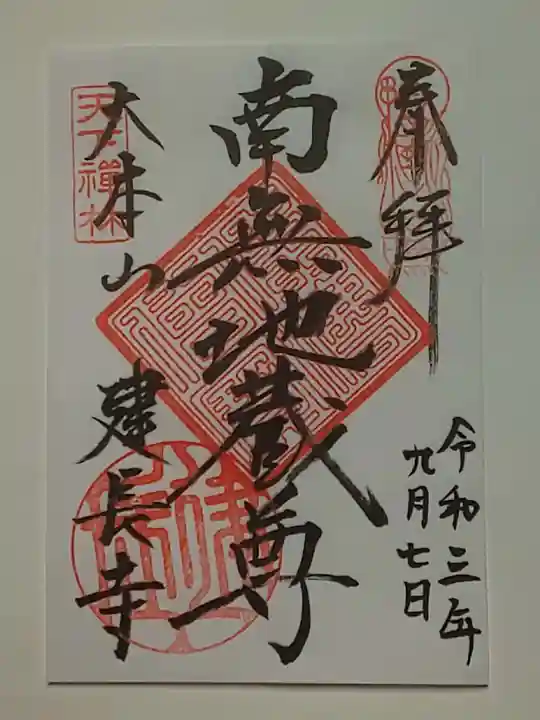 奉拝
令和三年
九月七日
南無地蔵尊
大本山
建長寺
天下禅林